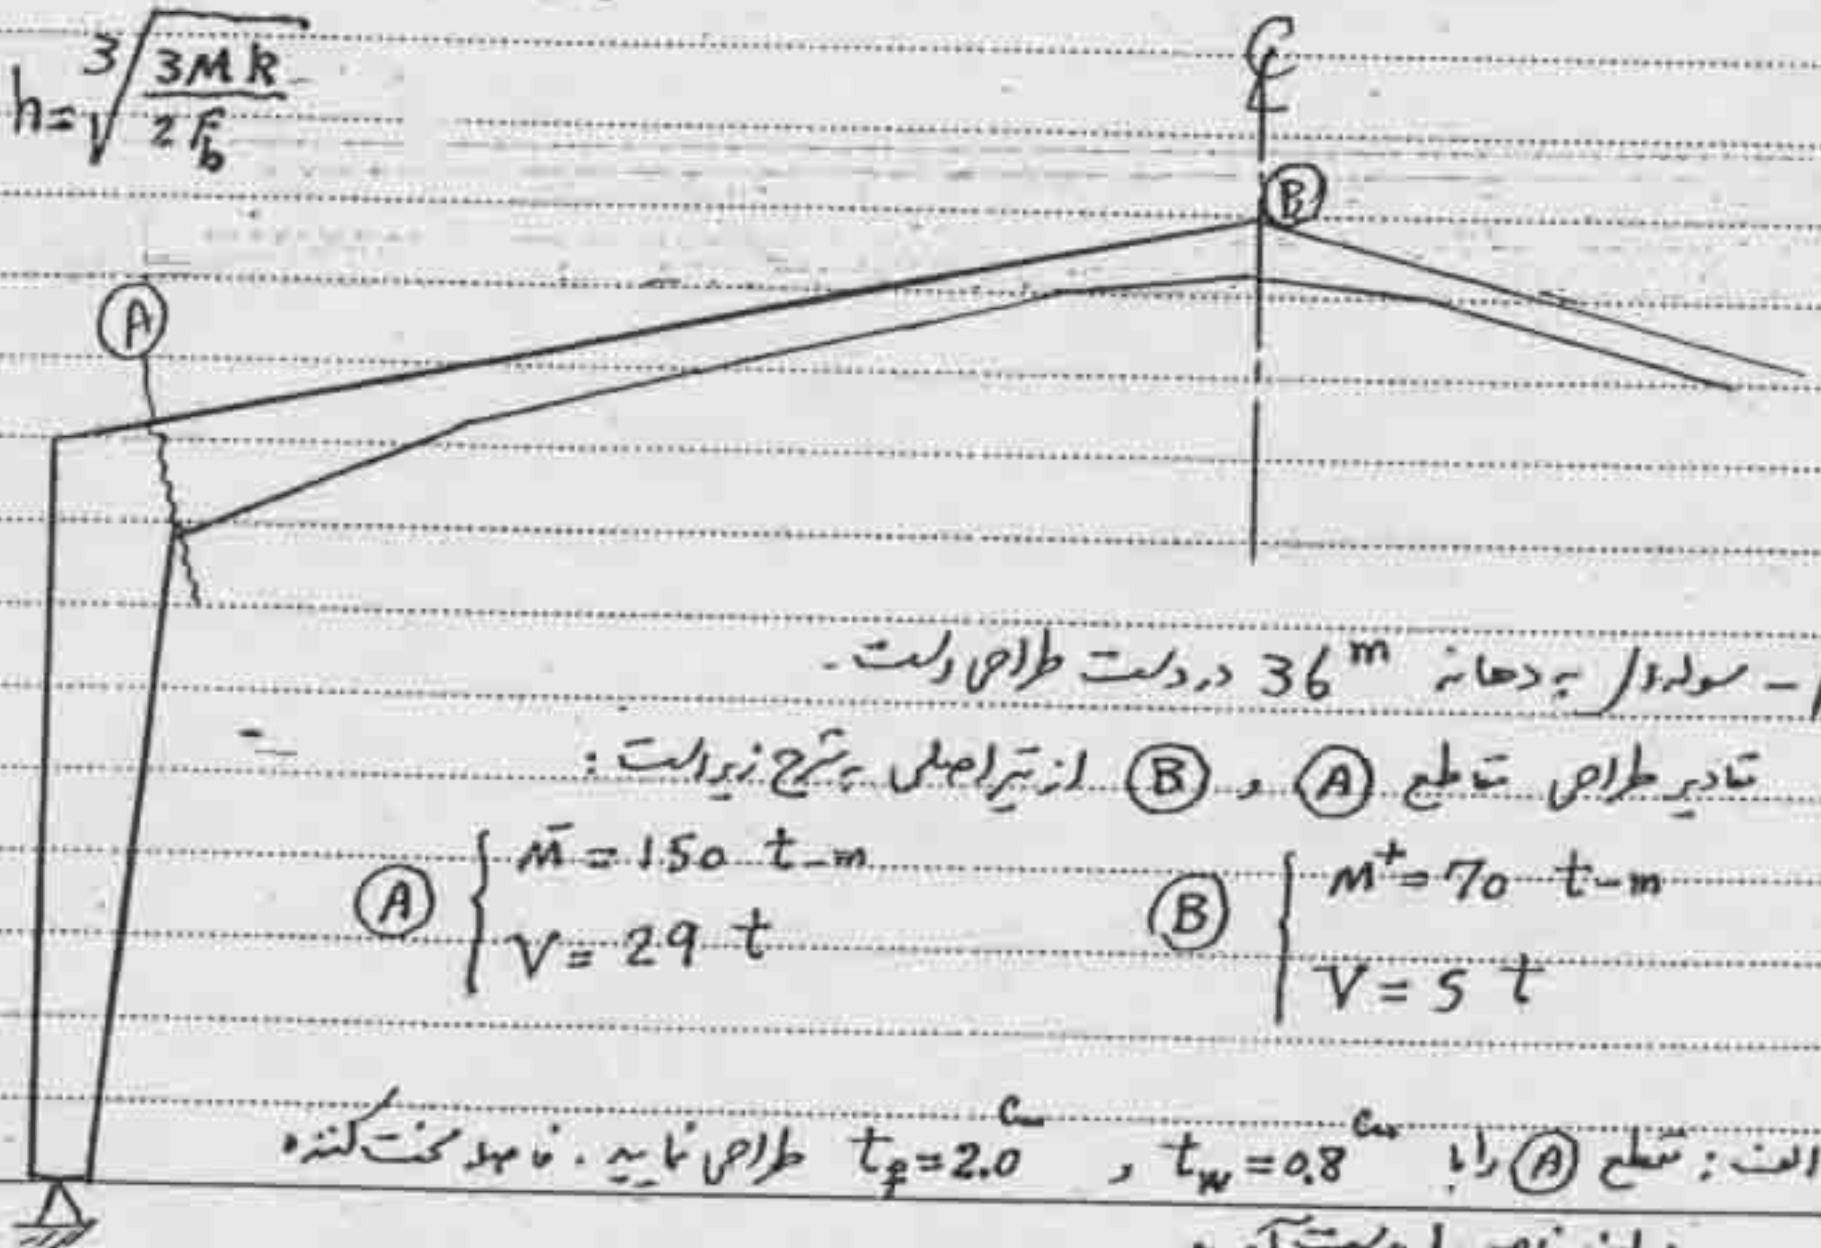 h = ∛(3Mk / 2F_b)
℄
B
A
1- سوله‌ای به دهانه 36 m در دست طراحی است.
مقادیر طراحی مقاطع A و B از تیر اصلی به شرح زیر است:
A { M⁻ = 150 t-m
V = 29 t
B { M⁺ = 70 t-m
V = 5 t
الف: مقطع A را با t_w = 0.8 cm و t_f = 2.0 cm طراحی نمایید. فاصله سخت کننده
را بدست آورید.